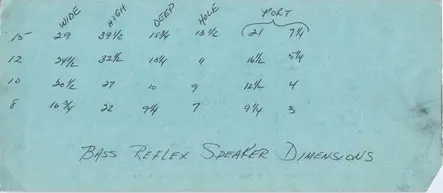 WIDE HIGH DEEP HOLE PORT
15 29 39 1/2 15 3/4 13 1/2 21 7 1/4
12 24 1/2 32 1/2 13 1/4 11 16 1/2 5 1/4
10 20 1/2 27 10 9 12 1/2 4
8 16 3/4 22 9 1/4 7 9 1/4 3
BASS REFLEX SPEAKER DIMENSIONS